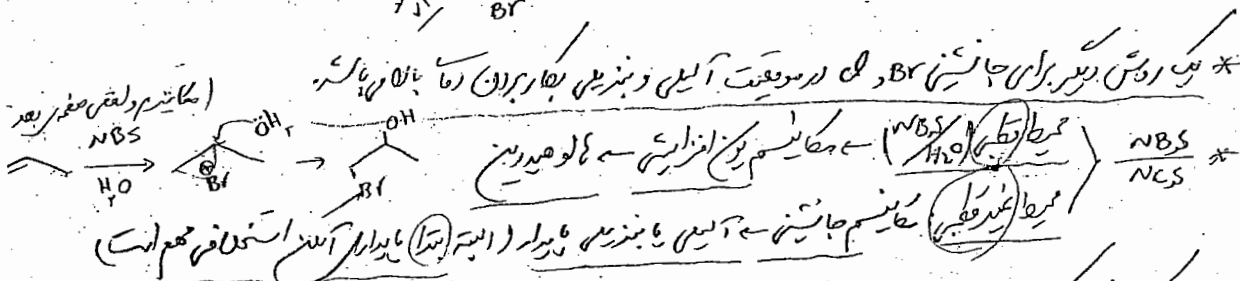 Br
* یک روش دیگر برای جانشینی Br و Cl در موقعیت آلیلی و بنزیلی بکار بردن دمای بالا می باشد.
(مکانیسم واقعی صفحه ی بعد
* NBS/NCS محیط قطبی (NBS/H₂O) ← مکانیسم یون افزایشی ← هالوهیدرین
NBS H₂O ⊕ Br ÖH₂ → OH Br
محیط غیرقطبی: مکانیسم جانشینی ← آلیلی یا بنزیلی پایدار (البته ابتدا پایداری آلکن استخلافی مهم است)